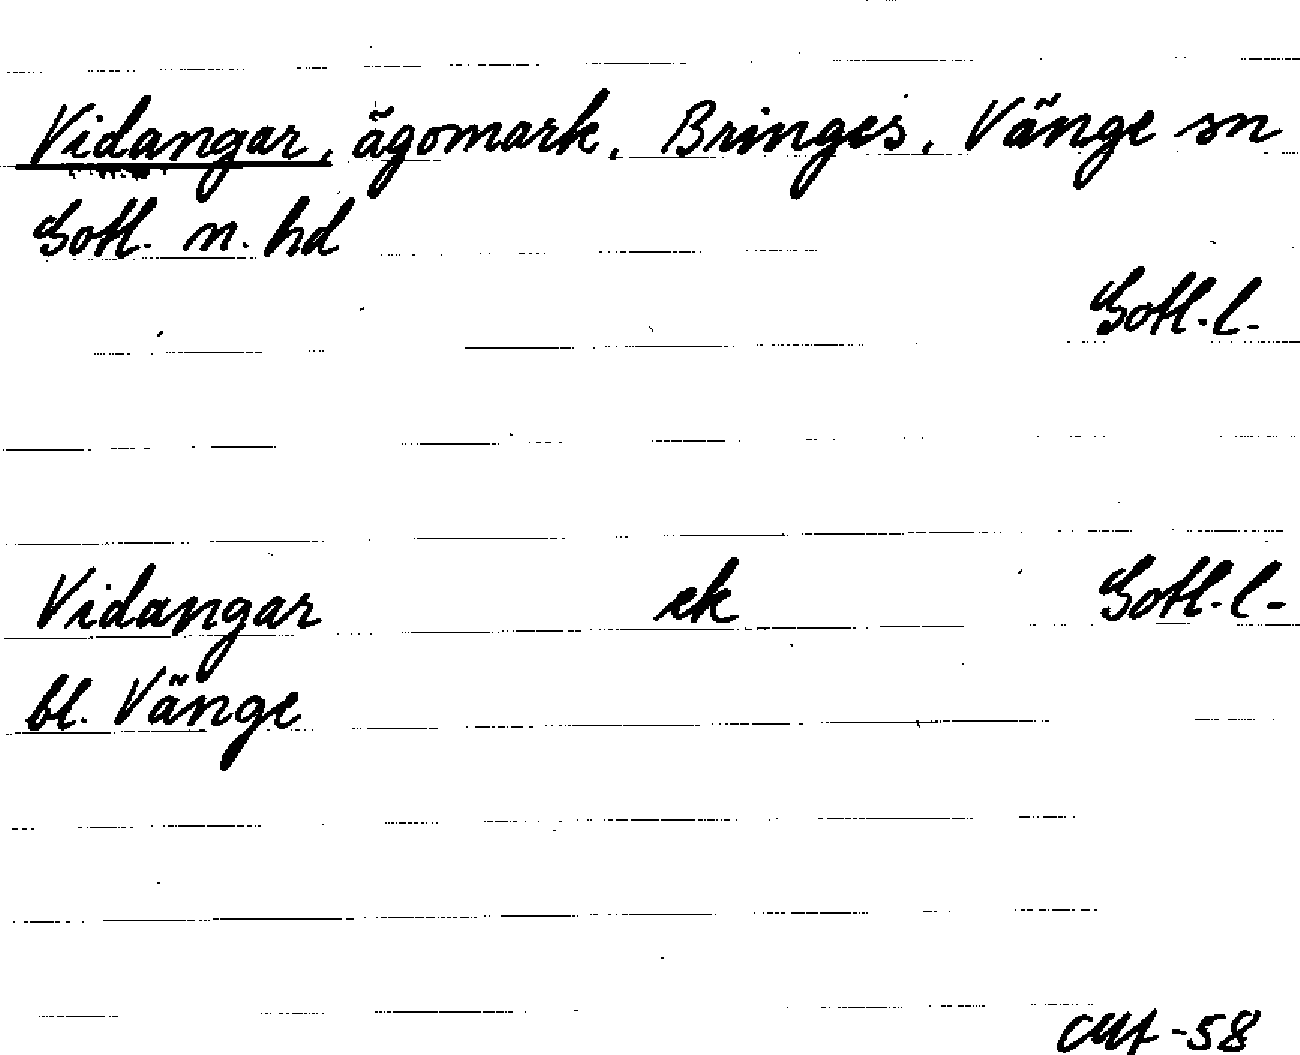 Vidangar, ägomark, Bringes, Vänge sn
Gotl. n. hd
Gotl.l.
Vidangar ek Gotl.l.
bl. Vänge
-58